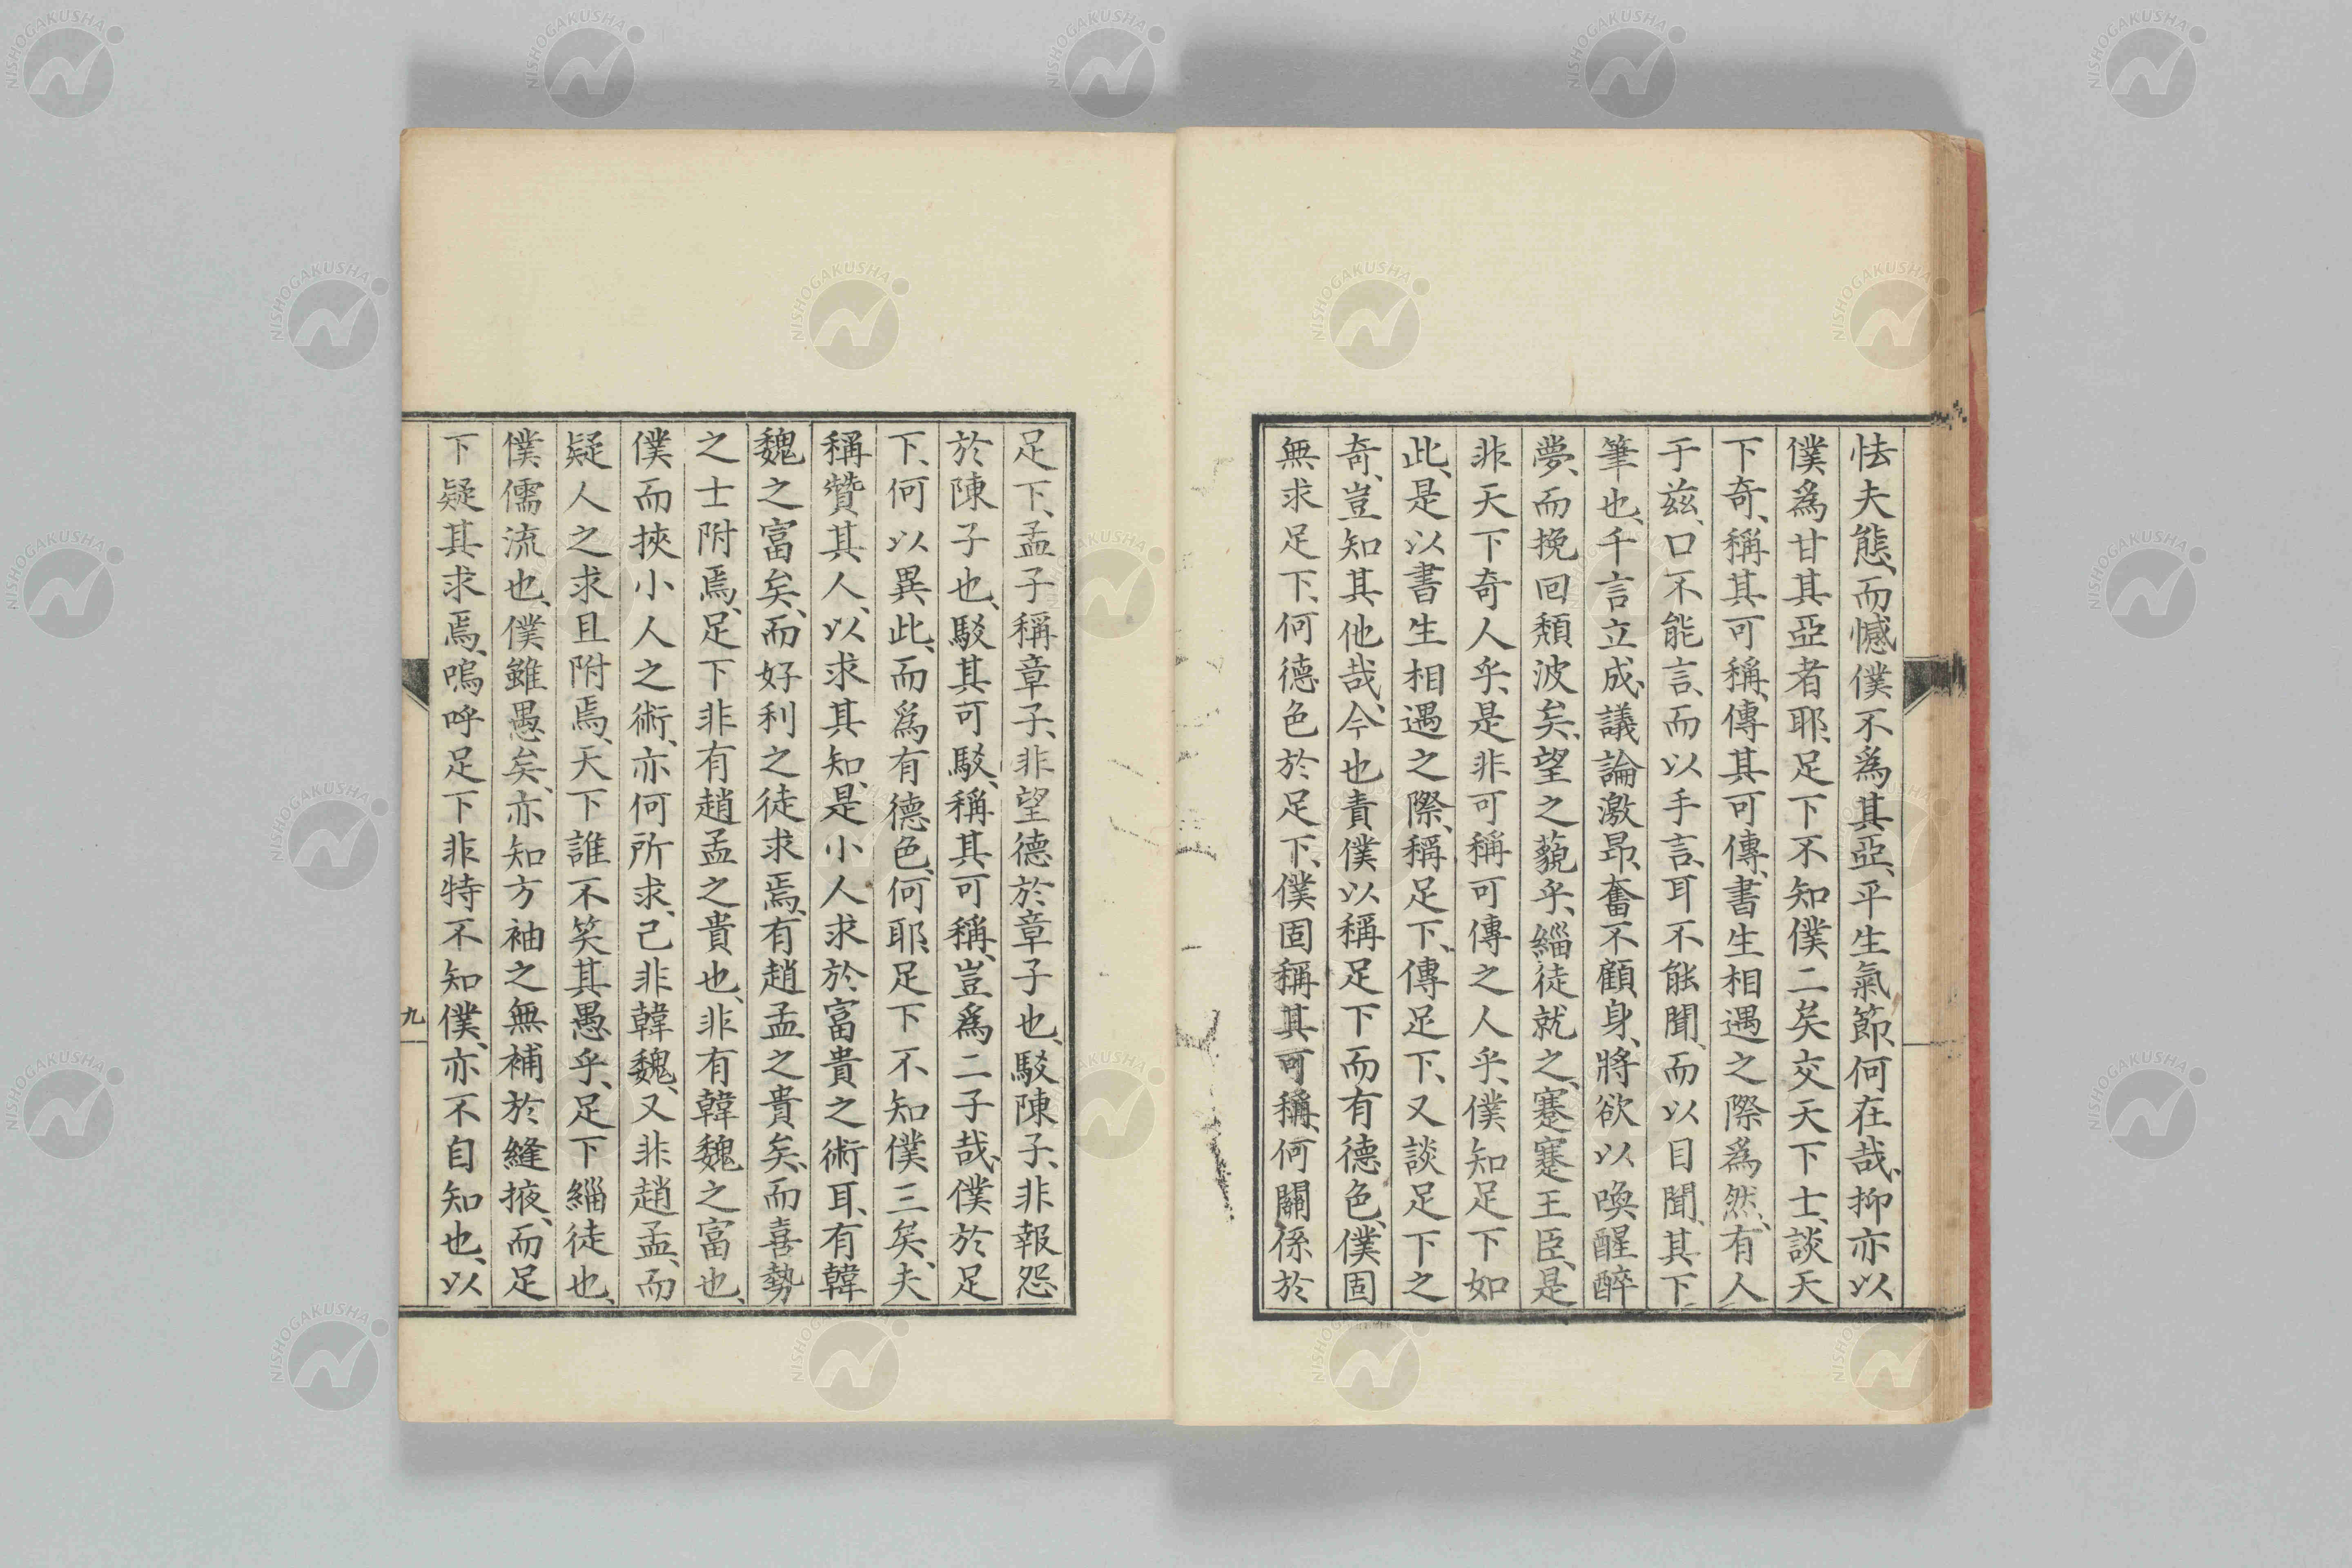 怯夫態、而憾僕不爲其亞、平生氣節、何在哉、抑亦以
僕爲甘其亞者耶、足下不知僕二矣、交天下士、談天
下奇、稱其可稱、傳其可傳、書生相遇之際爲然、有人
于茲、口不能言、而以手言、耳不能聞、而以目聞、其下
筆也、千言立成、議論激昂、奮不顧身、將欲以喚醒醉
夢、而挽回頽波矣、望之藐乎、緇徒就之、蹇蹇王臣、是
非天下奇人乎、是非可稱可傳之人乎、僕知足下如
此、是以書生相遇之際、稱足下、傳足下、又談足下之
奇、豈知其他哉、今也責僕以稱足下而有德色、僕固
無求足下、何德色於足下、僕固稱其可稱、何關係於
足下、孟子稱章子、非望德於章子也、駁陳子、非報怨
於陳子也、駁其可駁、稱其可稱、豈爲二子哉、僕於足
下、何以異此、而爲有德色、何耶、足下不知僕三矣、夫
稱贊其人、以求其知、是小人求於富貴之術耳、有韓
魏之富矣、而好利之徒求焉、有趙孟之貴矣、而喜勢
之士附焉、足下非有趙孟之貴也、非有韓魏之富也、
僕而挾小人之術、亦何所求、己非韓魏、又非趙孟、而
疑人之求且附焉、天下誰不笑其愚乎、足下緇徒也、
僕儒流也、僕雖愚矣、亦知方袖之無補於縫掖、而足
下疑其求焉、嗚呼足下非特不知僕、亦不自知也、以
九
NISHOGAKUSHA